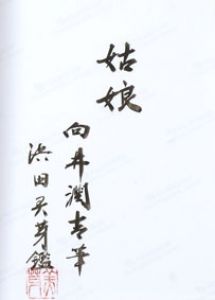 姑娘
向井潤吉筆
浜田美芽鑑